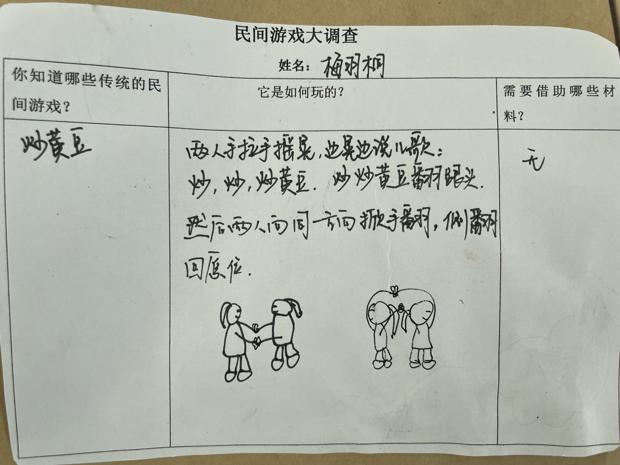 民间游戏大调查
姓名：梅羽桐
你知道哪些传统的民
间游戏？
它是如何玩的？
需要借助哪些材
料？
炒黄豆
两人手拉手摇晃，边晃边说儿歌：
炒，炒，炒黄豆．炒炒黄豆翻跟头．
然后两人向同一方向抬手翻，侧翻
回原位．
无